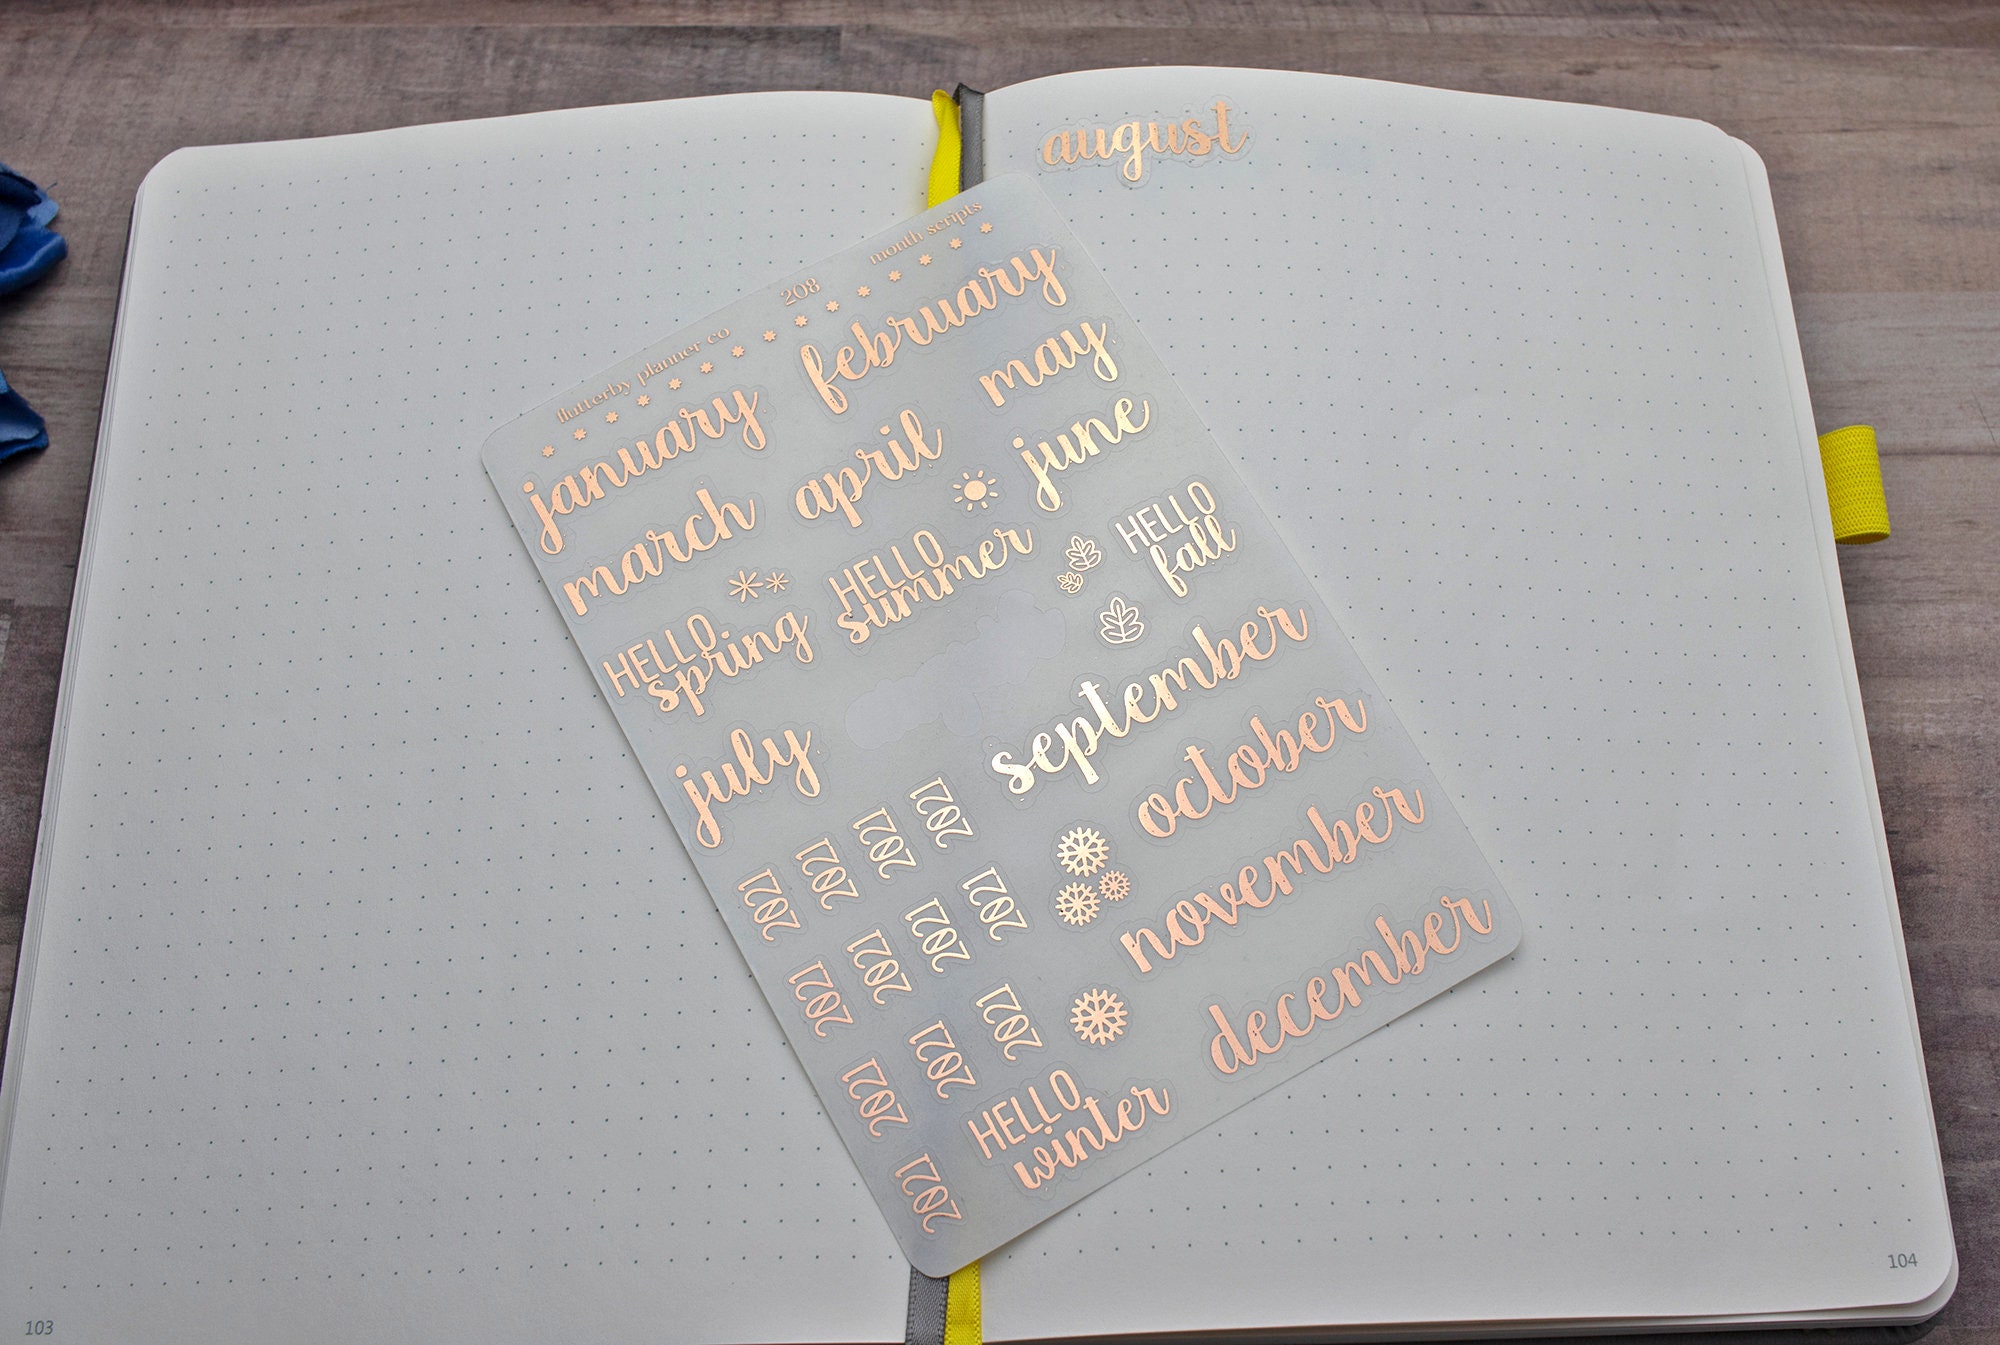 august
flutterby planner co 208 month scripts
january february
march april may
june
HELLO
spring
HELLO
summer
HELLO
fall
july
september
october
november
december
2021 2021 2021 2021
2021 2021 2021 2021
2021 2021 2021
2021
HELLO
winter
103
104